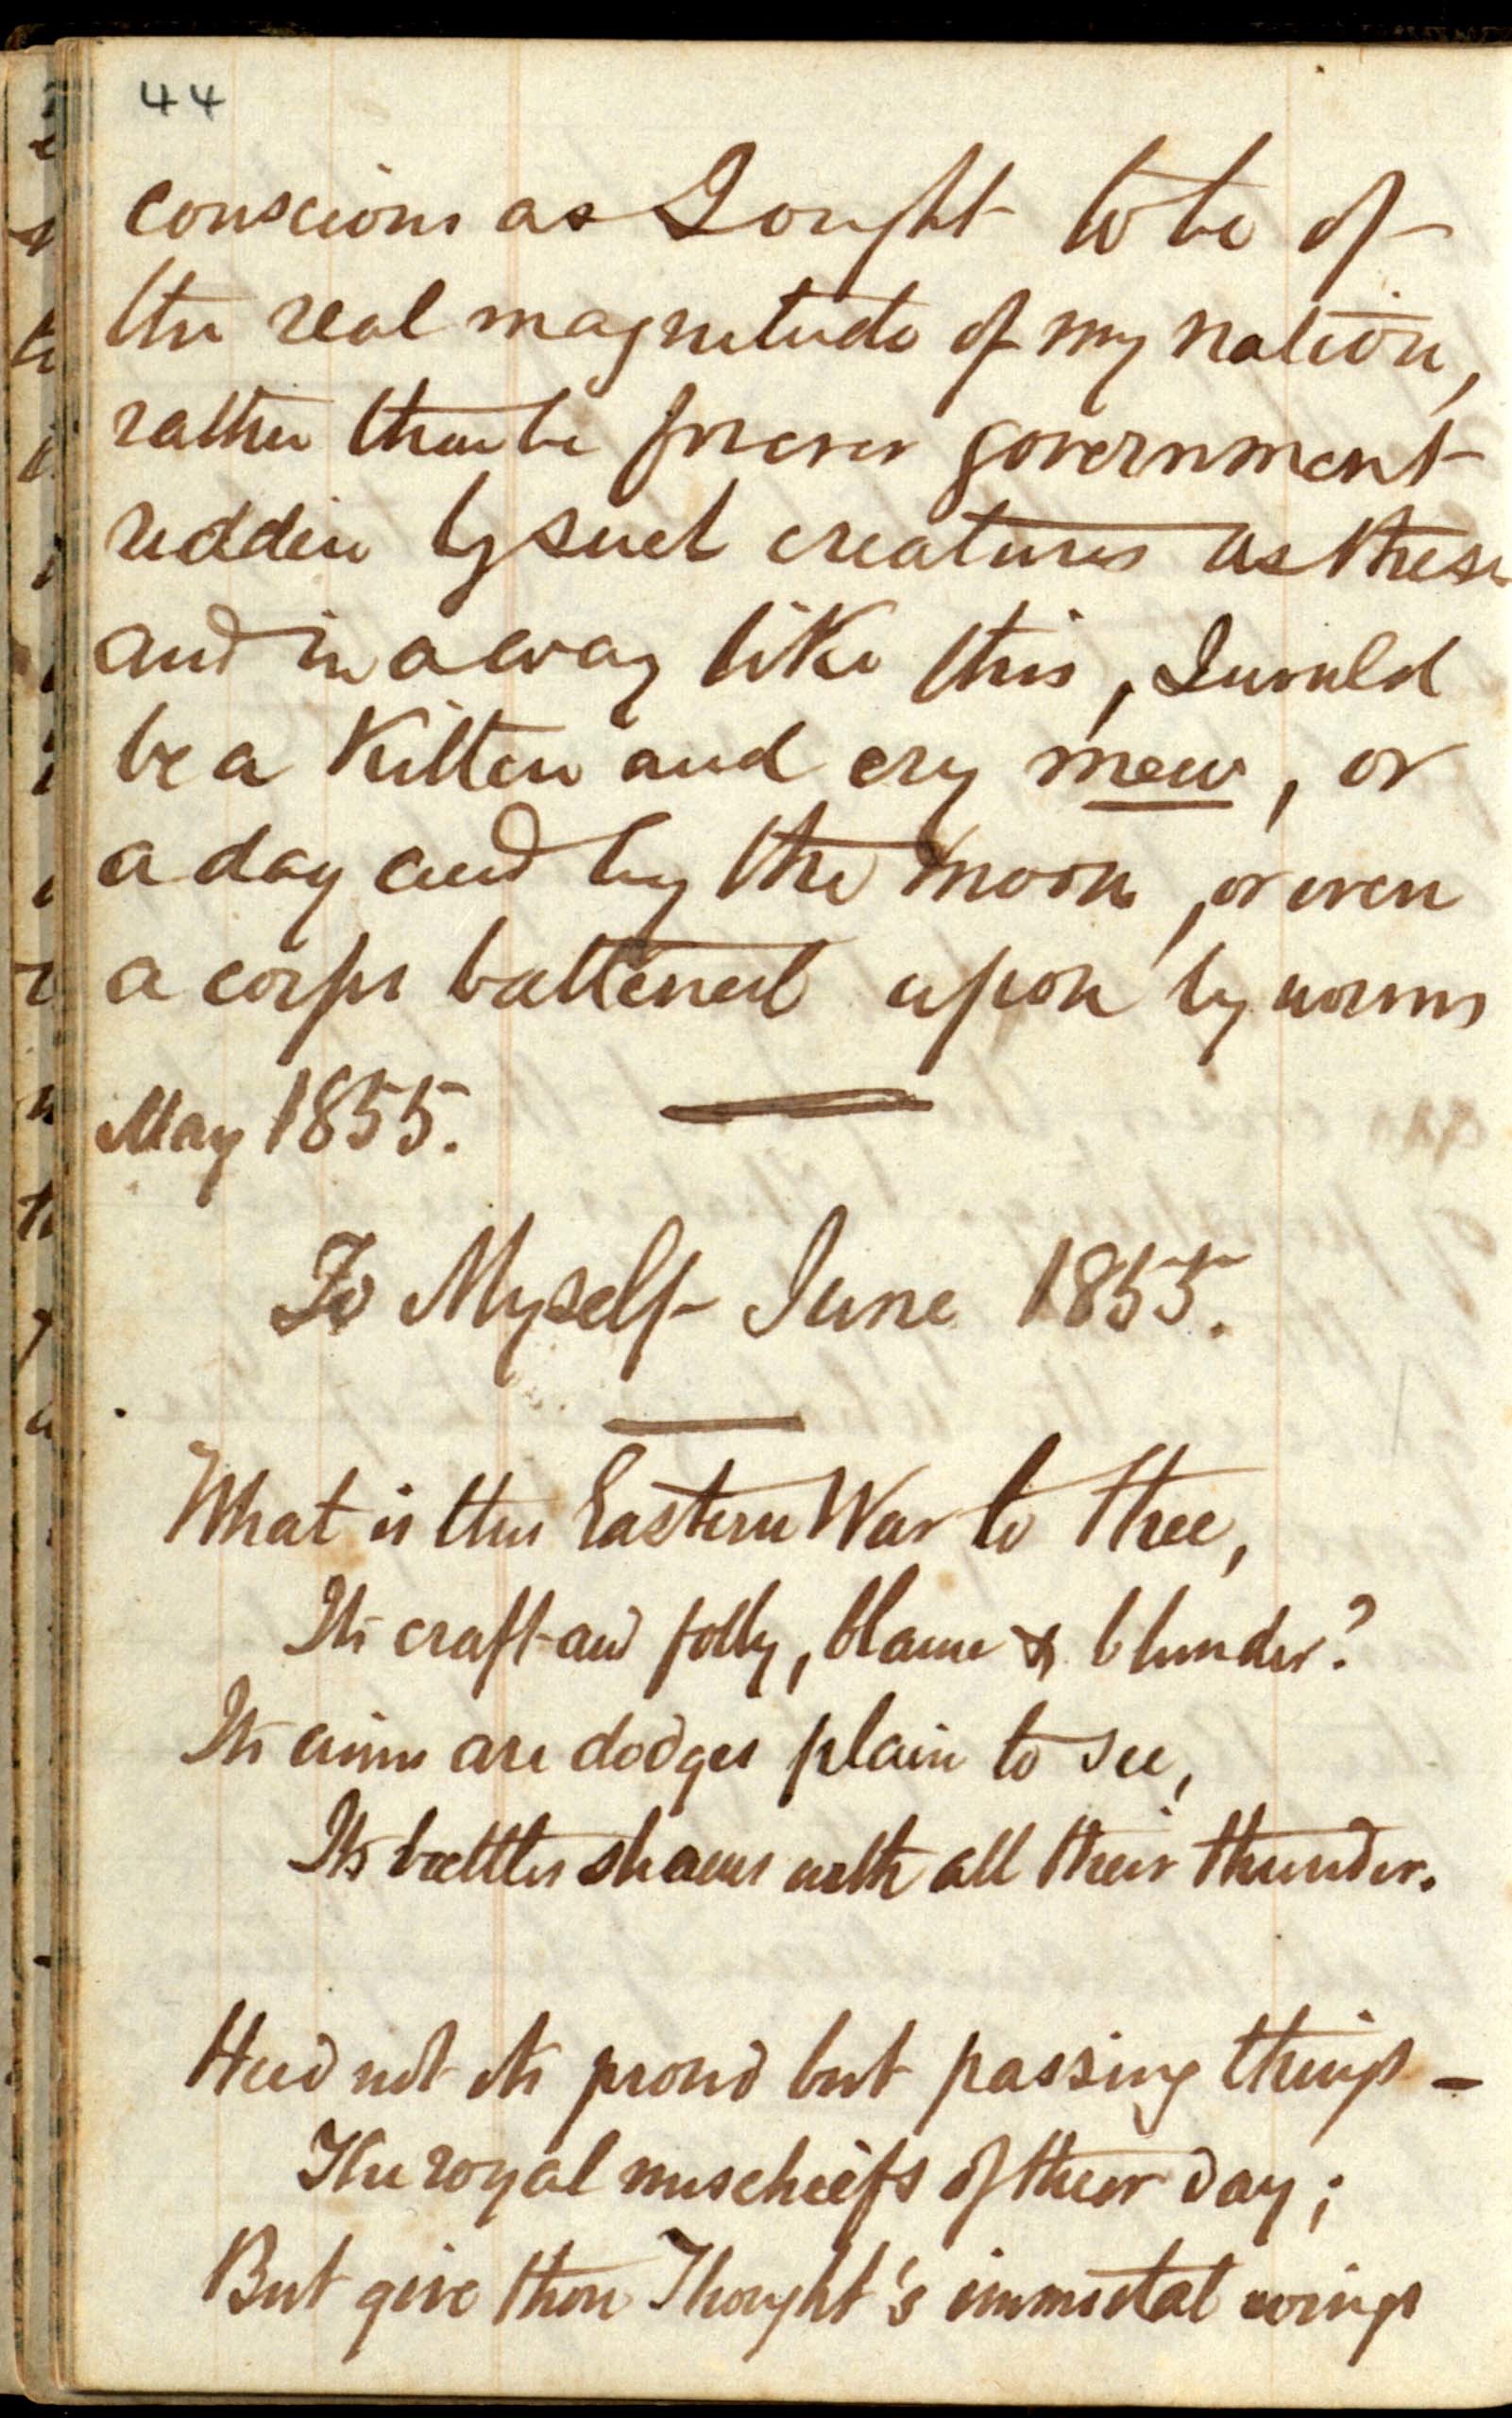 44
conscious as I ought to be of
the real magnitude of my nation,
rather than be forever government
ridden by such creatures as these
and in a way like this, I would
be a Kitten and cry mew, or
a dog and bay the moon, or even
a corps battened upon by worms
May 1855.
To Myself June 1855.
What is this Eastern War to thee,
Its craft and folly, blame & blunder?
Its aims are dodges plain to see,
Its battles shams with all their thunder.
Heed not its proud but passing things –
The royal mischiefs of their day;
But give thou Thought's immortal wings